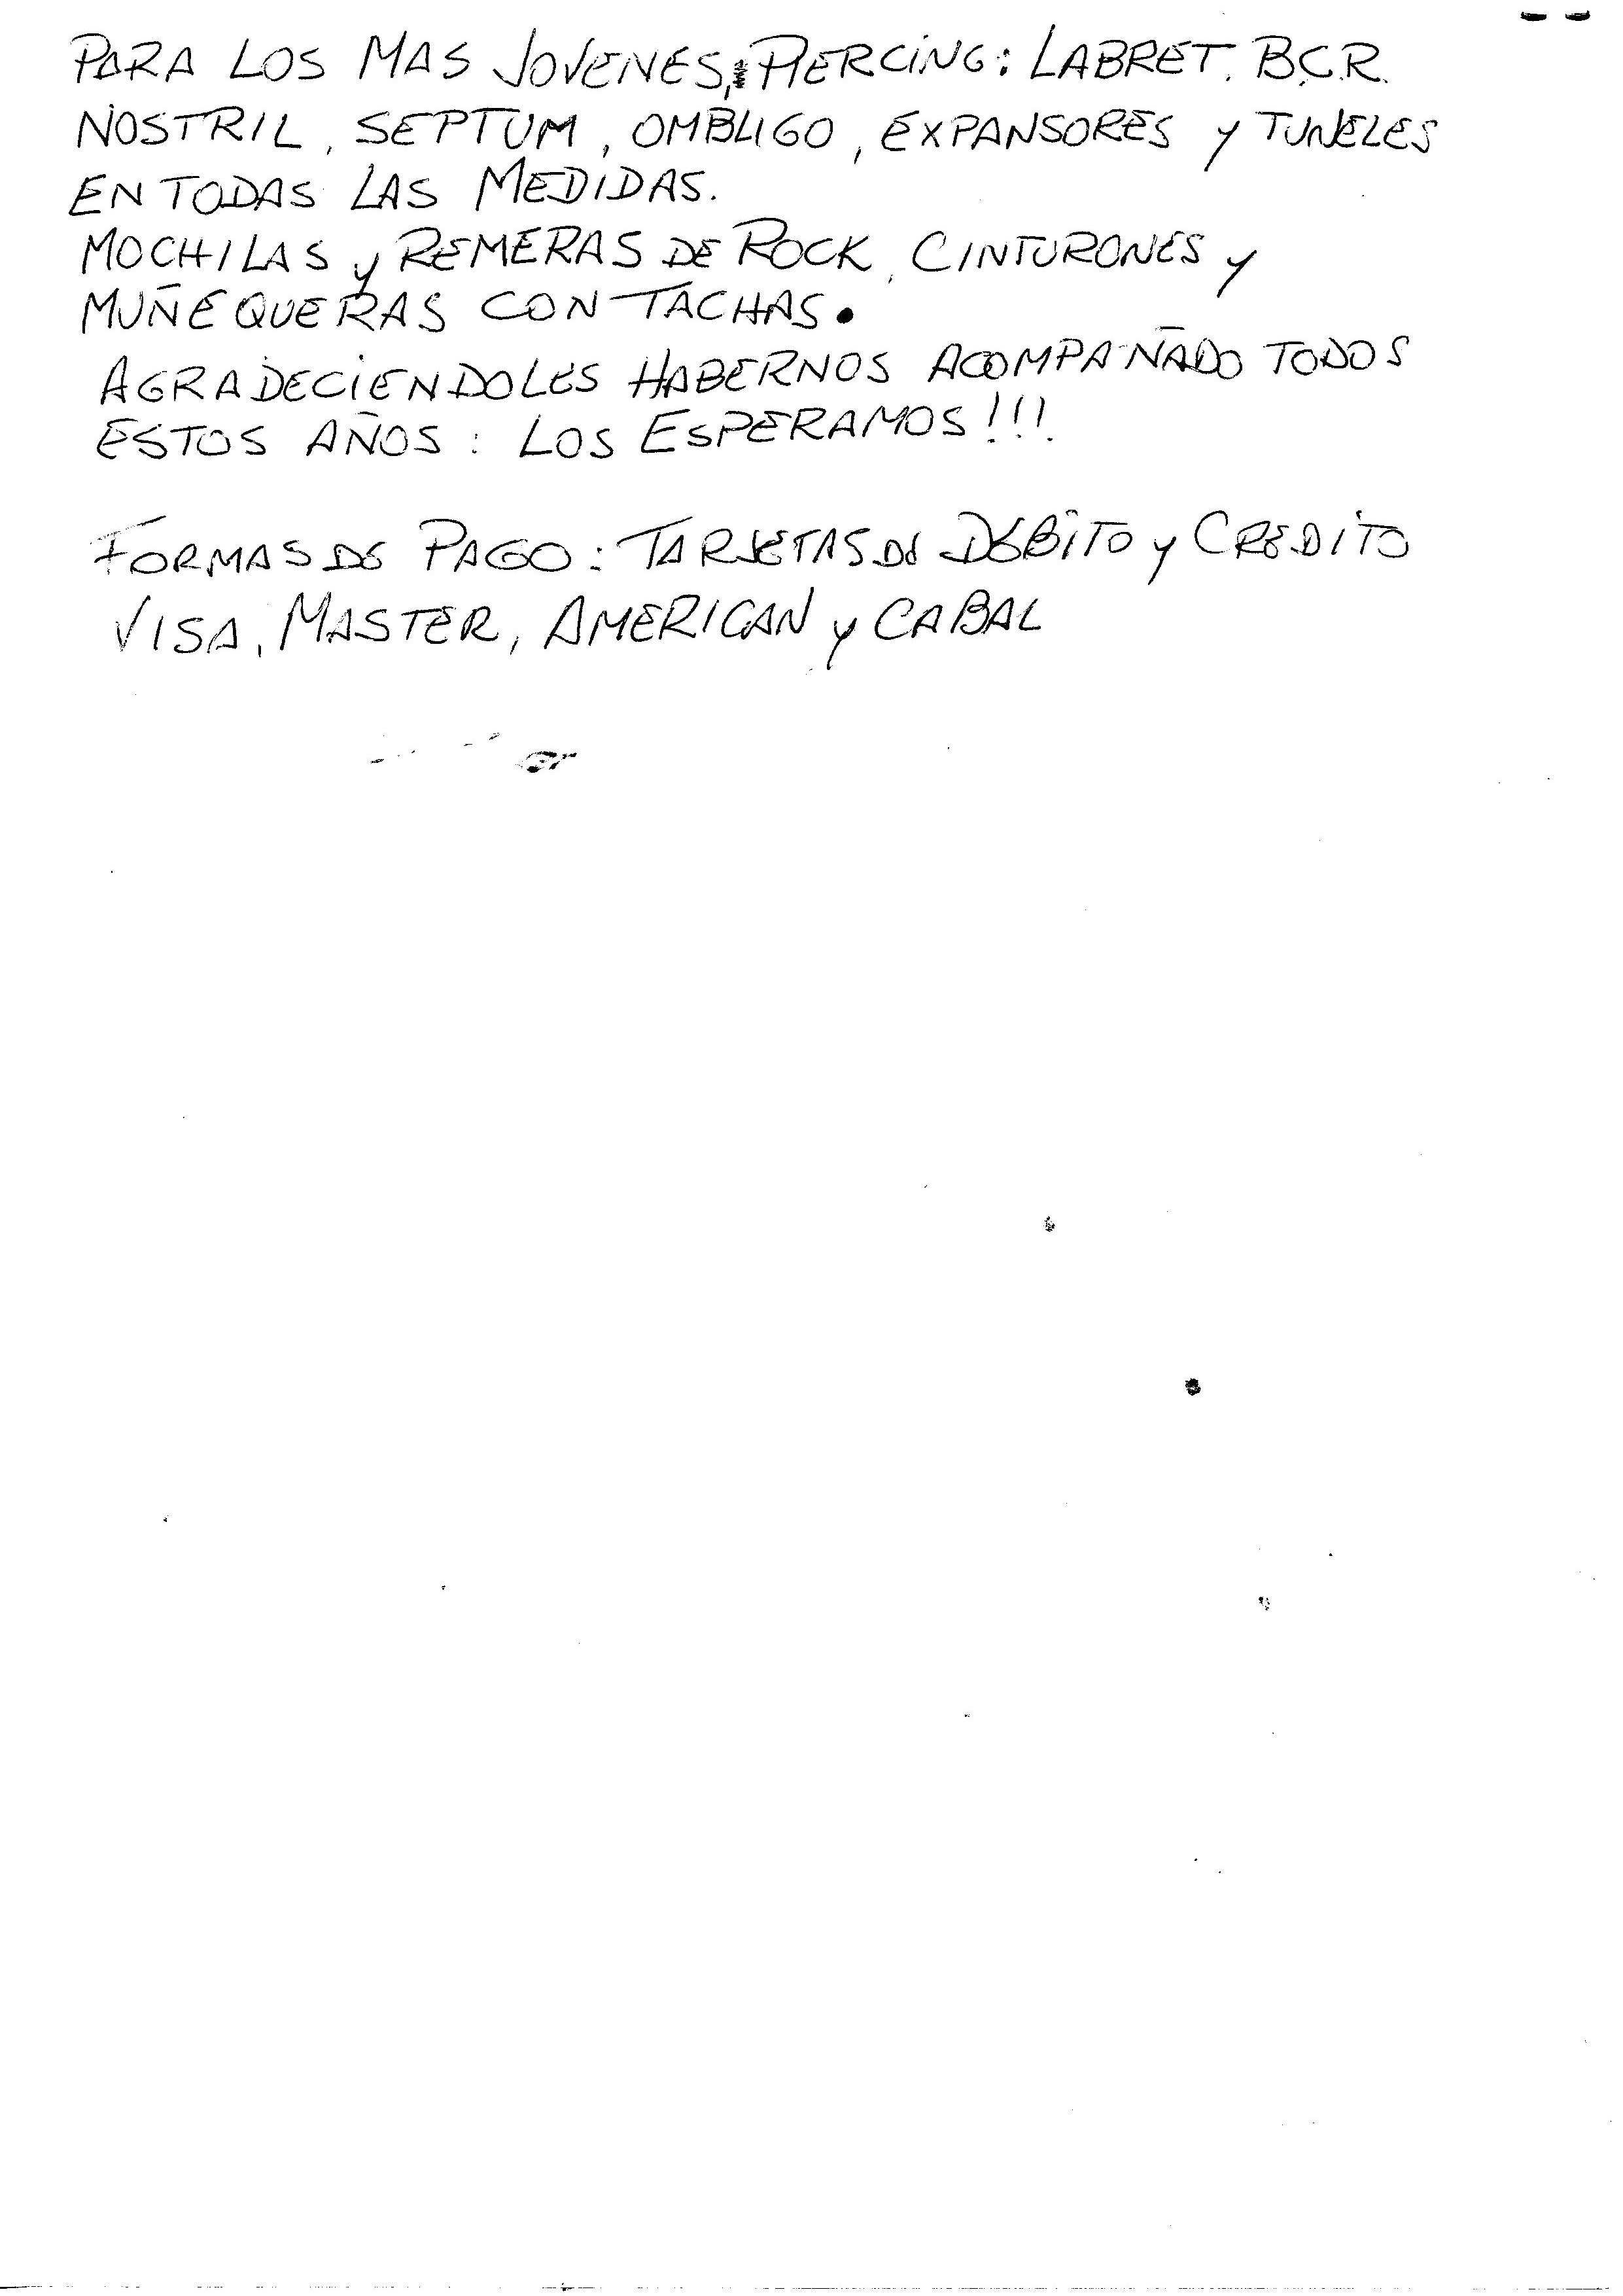 PARA LOS MAS JOVENES, PIERCING: LABRET. B.C.R.
NOSTRIL, SEPTUM, OMBLIGO, EXPANSORES Y TUNELES
EN TODAS LAS MEDIDAS.
MOCHILAS y REMERAS DE ROCK, CINTURONES y
MUÑEQUERAS CON TACHAS.
AGRADECIENDOLES HABERNOS ACOMPAÑADO TODOS
ESTOS AÑOS: LOS ESPERAMOS!!!
FORMAS DE PAGO: TARJETAS DE DEBITO y CREDITO
VISA, MASTER, AMERICAN y CABAL